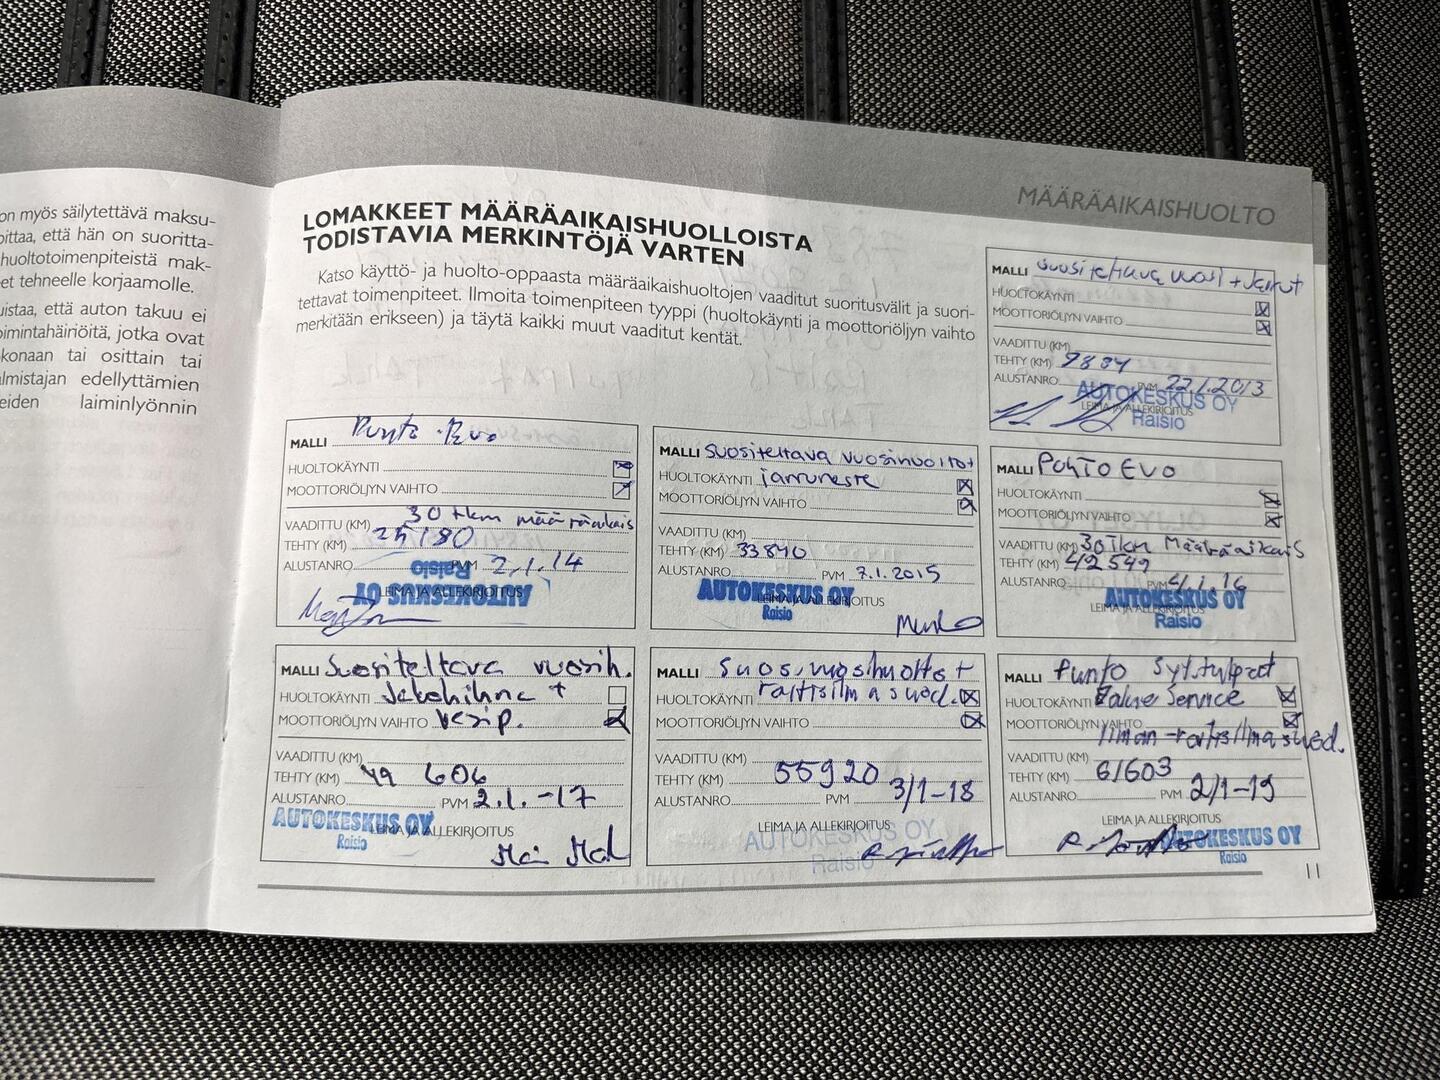 on myös säilytettävä maksu-
oittaa, että hän on suoritta-
huoltotoimenpiteistä mak-
et tehneelle korjaamolle.
uistaa, että auton takuu ei
oimintahäiriöitä, jotka ovat
konaan tai osittain tai
lmistajan edellyttämien
eiden laiminlyönnin
MÄÄRÄAIKAISHUOLTO
LOMAKKEET MÄÄRÄAIKAISHUOLLOISTA
TODISTAVIA MERKINTÖJÄ VARTEN
Katso käyttö- ja huolto-oppaasta määräaikaishuoltojen vaaditut suoritusvälit ja suori-
tettavat toimenpiteet. Ilmoita toimenpiteen tyyppi (huoltokäynti ja moottoriöljyn vaihto
merkitään erikseen) ja täytä kaikki muut vaaditut kentät.
MALLI suositeltava vuosi +
HUOLTOKÄYNTI
MOOTTORIÖLJYN VAIHTO
VAADITTU (KM)
TEHTY (KM) 9884
ALUSTANRO PVM 22.1.2013
AUTOKESKUS OY
LEIMA JA ALLEKIRJOITUS
Raisio
MALLI Punto Evo
HUOLTOKÄYNTI
MOOTTORIÖLJYN VAIHTO
VAADITTU (KM) 30 tkm määräaikais
TEHTY (KM) 25180
ALUSTANRO PVM 2.1.14
Raisio
LEIMA JA ALLEKIRJOITUS
AUTOKESKUS OY
MALLI suositeltava vuosihuolto+
HUOLTOKÄYNTI jarruneste
MOOTTORIÖLJYN VAIHTO
VAADITTU (KM)
TEHTY (KM) 33840
ALUSTANRO PVM 7.1.2015
AUTOKESKUS OY
LEIMA JA ALLEKIRJOITUS
Raisio
MALLI PUNTO EVO
HUOLTOKÄYNTI
MOOTTORIÖLJYN VAIHTO
VAADITTU (KM) 30TKM Määräaikais
TEHTY (KM) 42549
ALUSTANRO PVM 4.1.16
AUTOKESKUS OY
LEIMA JA ALLEKIRJOITUS
Raisio
MALLI Suositeltava vuosih.
HUOLTOKÄYNTI Jakohihna +
MOOTTORIÖLJYN VAIHTO vesip.
VAADITTU (KM)
TEHTY (KM) 49 606
ALUSTANRO PVM 2.1.-17
AUTOKESKUS OY
LEIMA JA ALLEKIRJOITUS
Raisio
MALLI suos. vuosihuolto +
HUOLTOKÄYNTI raitisilmasuod.
MOOTTORIÖLJYN VAIHTO
VAADITTU (KM)
TEHTY (KM) 55920
ALUSTANRO PVM 3/1-18
LEIMA JA ALLEKIRJOITUS
AUTOKESKUS OY
Raisio
MALLI Punto Syt.tulpat
HUOLTOKÄYNTI Value Service
MOOTTORIÖLJYN VAIHTO
ilman raitisilmasuod.
VAADITTU (KM)
TEHTY (KM) 61603
ALUSTANRO PVM 2/1-19
LEIMA JA ALLEKIRJOITUS
AUTOKESKUS OY
Raisio
11